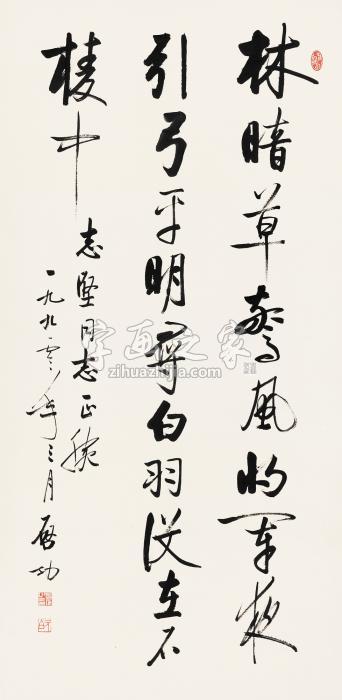 林暗草驚風将軍夜
引弓平明尋白羽没在石
棱中
志堅同志正腕
一九九零年三月 啟功
字画之家
www.zihuazhijia.com